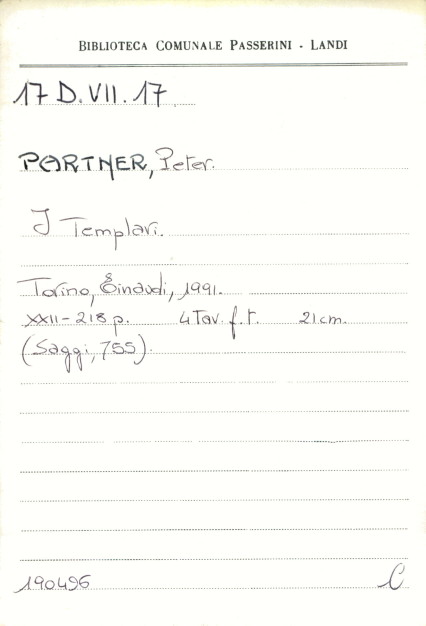 BIBLIOTECA COMUNALE PASSERINI - LANDI
17 D. VII. 17
PARTNER, Peter.
I Templari.
Torino, Einaudi, 1991.
XXII-218 p. 4 Tav. f. t. 21 cm.
(Saggi, 755).
190496 C